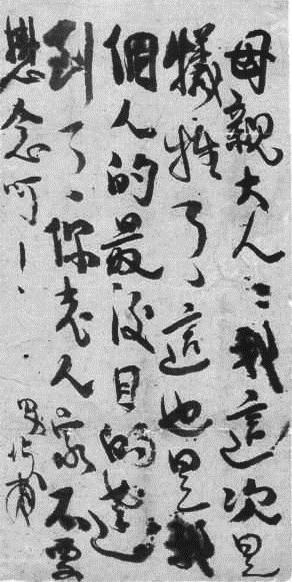 母親大人：我這次是
犧牲了、這也是我
個人的最後目的達
到了、你老人家不要
懸念呵！